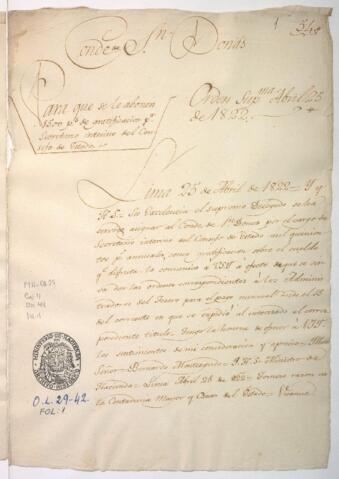 Conde de Sn Donas
Para que se le abonen
1500 ps de gratificacion pr
Secretario interino del Con
sejo de Estado.
Orden Supma Abril 25
de 1822.
Lima 25 de Abril de 1822 = Y
H. S. = Su Excelencia el supremo Delegado se ha
servido asignar al Conde de Sn Donas por el cargo de
Secretario interino del Consejo de Estado mil quinien
tos ps anuales, como gratificacion sobre el sueldo
qe disfruta: lo comunico a VSY a efecto de que se sir
va dar las ordenes correspondientes á los Adminis
tradores del Tesoro para el pago mensual desde el 15
del corriente en que se expidió al interesado el corres
pondiente titulo = Tengo la honra de ofrecer á VSY
los sentimientos de mi consideracion y aprecio = Illmo
Señor = Bernardo Monteagudo = Y. H. S. Ministro de
Hacienda = Lima Abril 25 de 822 = Tomese razon en
la Contaduria Mayor y Caxas del Estado =
O.L. 29-42
FOL: 1